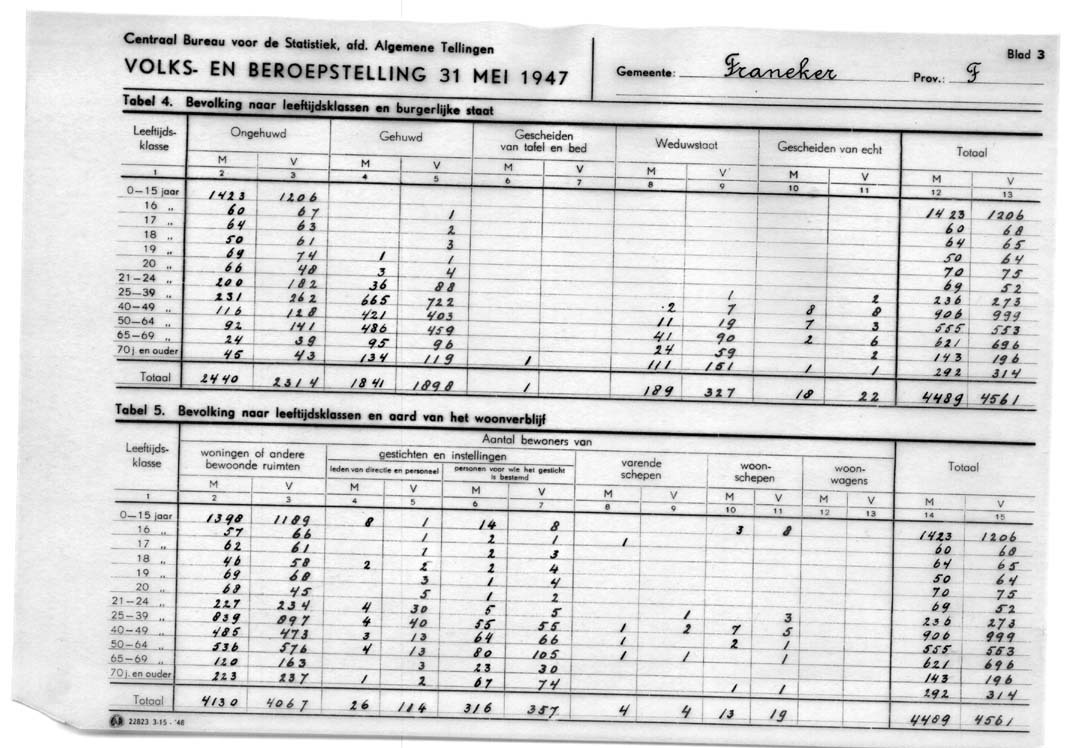 Centraal Bureau voor de Statistiek, afd. Algemene Tellingen
VOLKS- EN BEROEPSTELLING 31 MEI 1947
Gemeente: Franeker Prov.: F
Blad 3
Tabel 4. Bevolking naar leeftijdsklassen en burgerlijke staat
Leeftijds-klasse Ongehuwd Gehuwd Gescheiden van tafel en bed Weduwstaat Gescheiden van echt Totaal
M V M V M V M V M V M V
1 2 3 4 5 6 7 8 9 10 11 12 13
0—15 jaar 1423 1206 1423 1206
16 „ 60 67 1 60 68
17 „ 64 63 2 64 65
18 „ 50 61 3 50 64
19 „ 69 74 1 1 70 75
20 „ 66 48 3 4 69 52
21—24 „ 200 182 36 88 1 2 236 273
25—39 „ 231 262 665 722 2 7 8 8 906 999
40—49 „ 116 128 421 403 11 19 7 3 555 553
50—64 „ 92 141 486 459 41 90 2 6 621 696
65—69 „ 24 39 95 96 24 59 2 143 196
70 j en ouder 45 43 134 119 1 111 151 1 1 292 314
Totaal 2440 2314 1841 1898 1 189 327 18 22 4489 4561
Tabel 5. Bevolking naar leeftijdsklassen en aard van het woonverblijf
Leeftijds-klasse
Aantal bewoners van
woningen of andere bewoonde ruimten gestichten en instellingen varende schepen woon-schepen woon-wagens Totaal
leden van directie en personeel personen voor wie het gesticht is bestemd
M V M V M V M V M V M V M V
1 2 3 4 5 6 7 8 9 10 11 12 13 14 15
0—15 jaar 1398 1189 8 1 14 8 3 8 1423 1206
16 „ 57 66 1 2 1 1 60 68
17 „ 62 61 1 2 3 64 65
18 „ 46 58 2 2 2 4 50 64
19 „ 69 68 3 1 4 70 75
20 „ 68 45 5 1 2 69 52
21—24 „ 227 234 4 30 5 5 1 3 236 273
25—39 „ 839 897 4 40 55 55 1 2 7 5 906 999
40—49 „ 485 473 3 13 64 66 1 2 1 555 553
50—64 „ 536 576 4 13 80 105 1 1 1 621 696
65—69 „ 120 163 3 23 30 143 196
70 j. en ouder 223 237 1 2 67 74 1 1 292 314
Totaal 4130 4067 26 114 316 357 4 4 13 19 4489 4561
22823 3-15 - '48